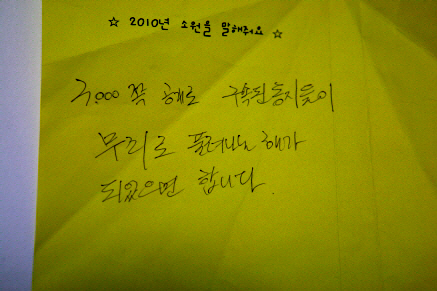 ☆ 2010년 소원을 말해줘요 ☆
3,000 쪽 공개로 구속된 동지들이
무죄로 풀려나는 해가
되었으면 합니다.